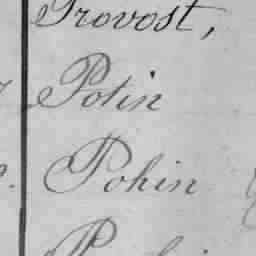 Provost,
Potin
Pohin